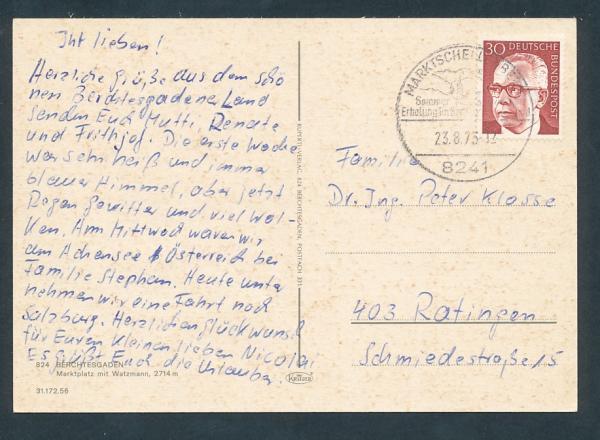 Ihr lieben!
Herzliche Grüße aus dem schö
nen Berchtesgadener Land
senden Euch Mutti, Renate
und Frithjof. Die erste Woche
war sehr heiß und immer
blauer Himmel, aber jetzt
Regen Gewitter und viel Wol-
ken. Am Mittwoch waren wir
am Achensee Österreich bei
Familie Stephan. Heute unter
nehmen wir eine Fahrt nach
Salzburg. Herzlichen Glückwunsch
für Euren kleinen lieben Nicolai
Es grüßt Euch die Urlauber.
824 BERCHTESGADEN
Marktplatz mit Watzmann, 2714 m
31.172.56
KUPERTIVERLAG, 824 BERCHTESGADEN, POSTFACH 331
MARKTSCHELLENB
Sommer
Erholung
23.8.73-12
8241
30 DEUTSCHE
BUNDESPOST
Familie
Dr. Ing. Peter Klasse
403 Ratingen
Schmiedestraße 15